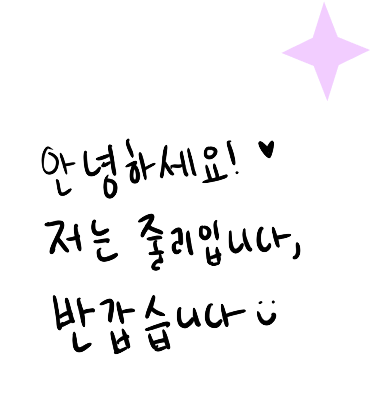 안녕하세요! ♥
저는 줄리입니다,
반갑습니다 ü